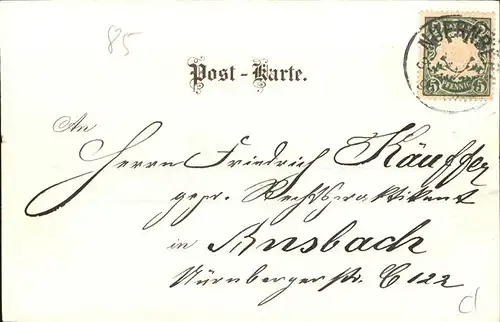 85
NUERNBE
BAYERN
5 PFENNIG 5
Post-Karte.
An
Herrn Friedrich Käuffer
gepr. Rechtspraktikant
in Ansbach
Nürnbergerstr. C 122
d